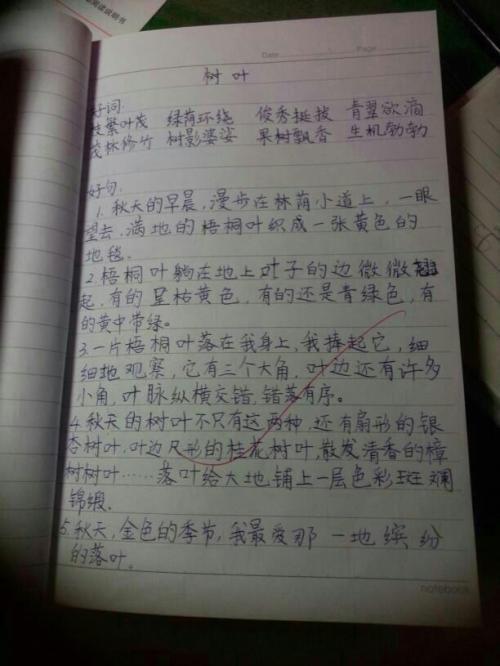 阅读说明书
Date
Page
树叶
好词:
枝繁叶茂 绿荫环绕 俊秀挺拔 青翠欲滴
茂林修竹 树影婆娑 果树飘香 生机勃勃
好句:
1. 秋天的早晨,漫步在林荫小道上,一眼
望去,满地的梧桐叶织成一张黄色的
地毯。
2.梧桐叶躺在地上叶子的边微微翘
起,有的呈枯黄色,有的还是青绿色,有
的黄中带绿。
3.一片梧桐叶落在我身上,我捧起它,细
细地观察,它有三个大角,叶边还有许多
小角,叶脉纵横交错,错落有序。
4.秋天的树叶不只有这两种,还有扇形的银
杏树叶,叶边尺形的桂花树叶,散发清香的樟
树树叶……落叶给大地铺上一层色彩斑斓
锦缎.
5.秋天,金色的季节,我最爱那一地缤纷
的落叶。
notebook